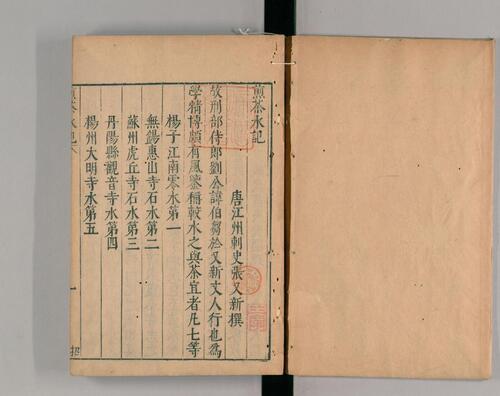 煎茶水記
唐江州刺史張又新撰
故刑部侍郎劉公諱伯芻於又新丈人行也爲
學精博頗有風鑒稱較水之與茶宜者凡七等
揚子江南零水第一
無錫惠山寺石水第二
蘇州虎丘寺石水第三
丹陽縣觀音寺水第四
揚州大明寺水第五
煎茶水記
一